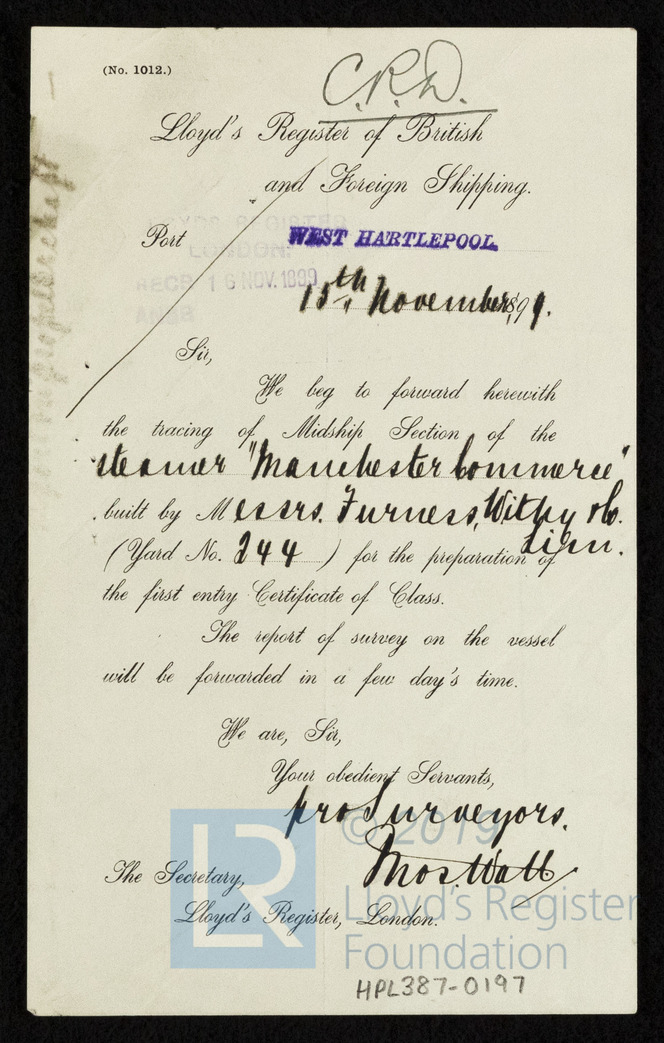 (No. 1012.)
C.R.D.
Lloyd's Register of British
and Foreign Shipping.
LLOYDS REGISTER
LONDON.
Port WEST HARTLEPOOL
RECD 16 NOV. 1899
15th November, 1899.
ANSD
Sir,
We beg to forward herewith
the tracing of Midship Section of the
steamer "Manchester Commerce"
built by Messrs. Furness, Withy & Co.
Lim.
(Yard No. 244) for the preparation of
the first entry Certificate of Class.
The report of survey on the vessel
will be forwarded in a few day's time.
We are, Sir,
Your obedient Servants,
pro Surveyors.
Thos. Watt
The Secretary,
Lloyd's Register, London.
© 2019
LR
Lloyd's Register
Foundation
HPL387-0197